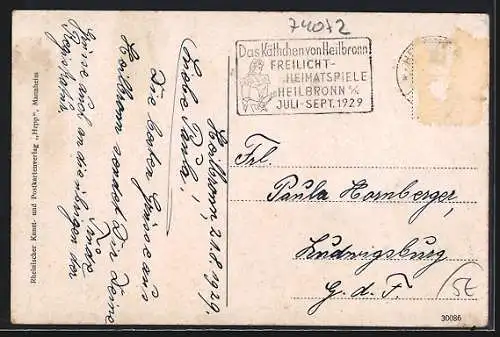 74072
Das Käthchen von Heilbronn
FREILICHT-
HEIMATSPIELE
HEILBRONN a/N
JULI-SEPT. 1929
Heilbronn, 21.8.1929.
Liebe Paula!
Die besten Grüsse aus
Heilbronn sendet Dir Deine
Grüsse auch an die übrigen der
Rheinischer Kunst- und Postkartenverlag „Hepp", Mannheim
Frl.
Paula Hornberger,
Ludwigsburg
G. d. F.
5E
30086